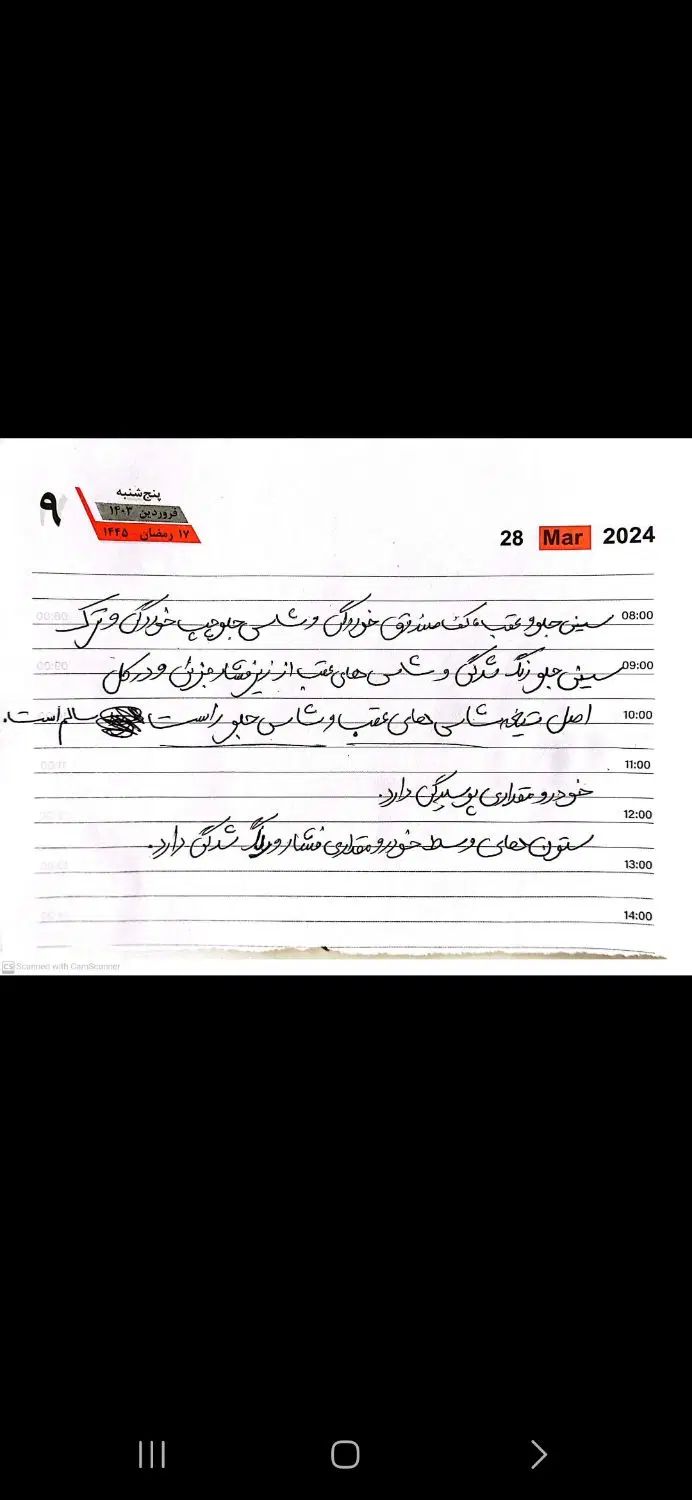 ۹
پنج‌شنبه
فروردین ۱۴۰۳
۱۷ رمضان ۱۴۴۵
28 Mar 2024
08:00
سینی جلو و عقب، کف صندوق خوردگی و شاسی جلو چپ خوردگی و ترک
09:00
سینی جلو رنگ شدگی و شاسی های عقب از زیر فشار جزئی و در کل
10:00
اصل شاسی های عقب و شاسی جلو راست سالم است.
11:00
خودرو مقداری پوسیدگی دارد.
12:00
ستون های وسط خودرو مقداری فشار و رنگ شدگی دارد.
13:00
14:00
CS Scanned with CamScanner